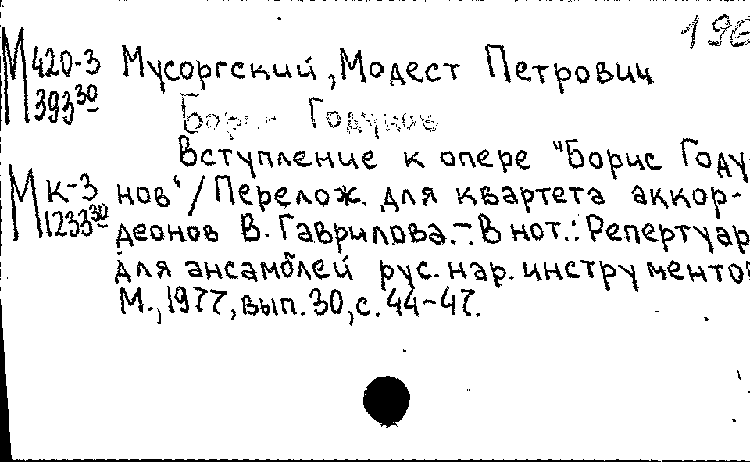 196
М 420-3 Мусоргский, Модест Петрович
393 30 Борис Годунов
Вступление к опере "Борис Году-
М К-3 нов"/Перелож. для квартета аккор-
1233 30 деонов В. Гаврилова.-В нот.: Репертуар
для ансамблей рус. нар. инструментов
М., 1977, вып. 30, с. 44-47.